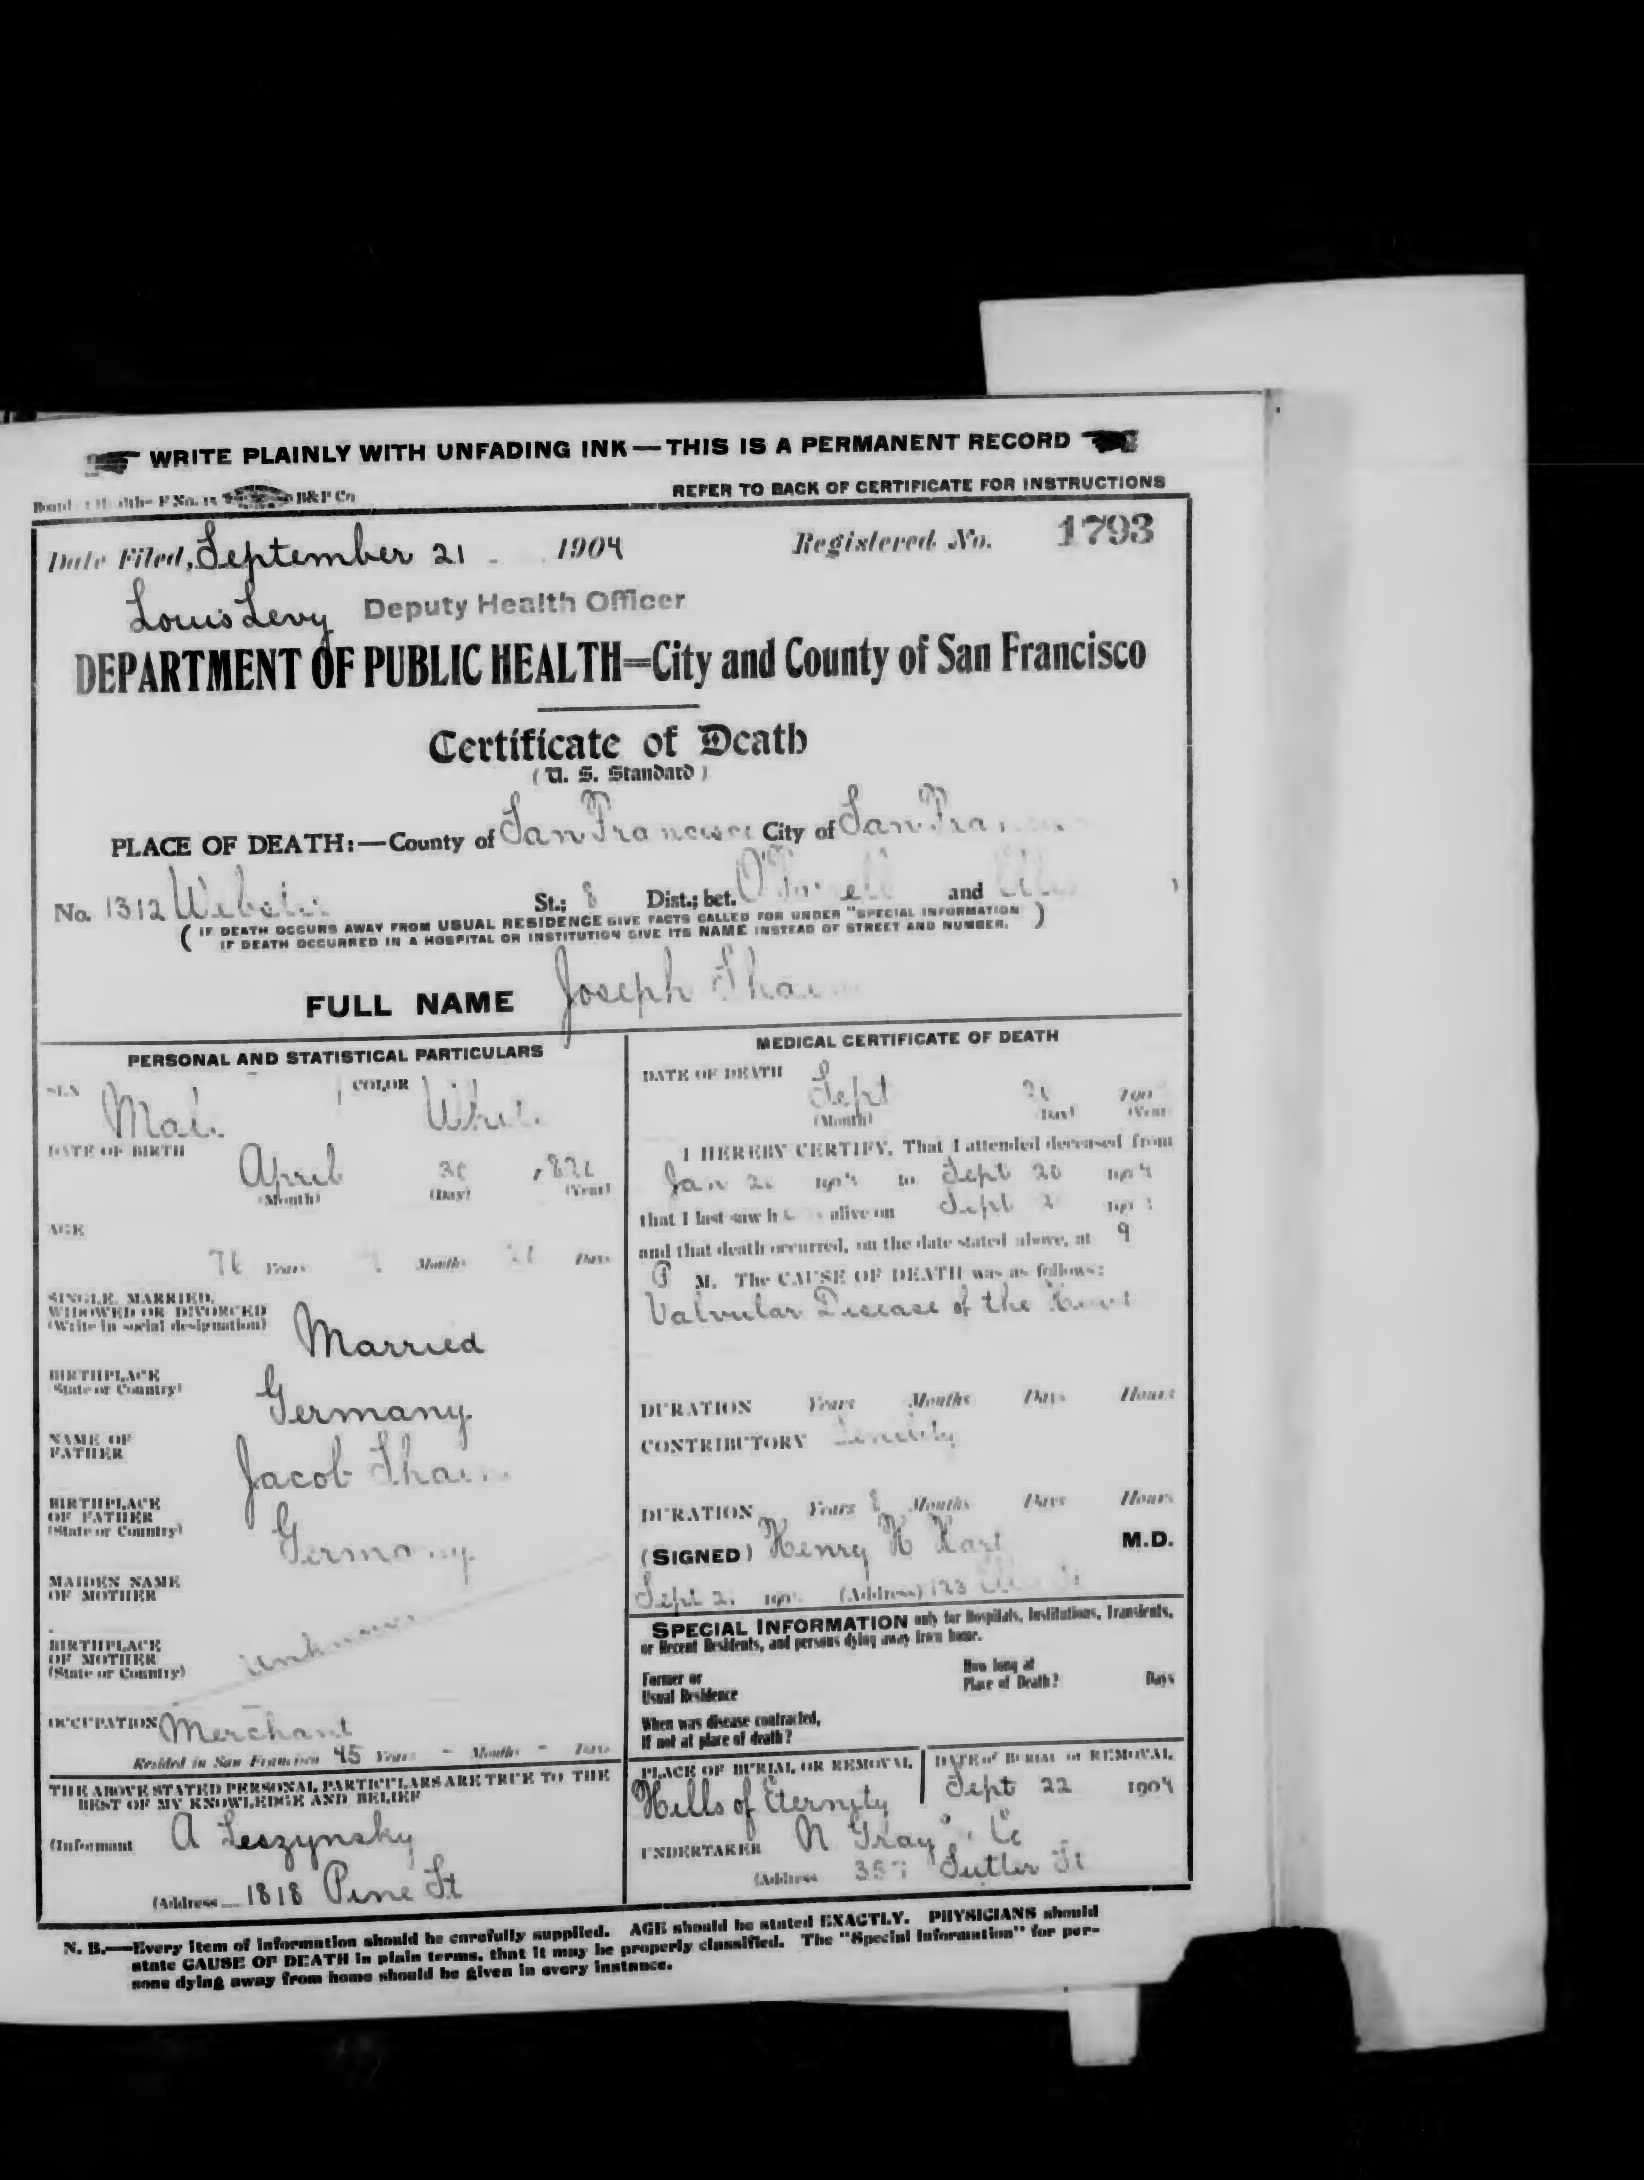 WRITE PLAINLY WITH UNFADING INK — THIS IS A PERMANENT RECORD
B&P Co
REFER TO BACK OF CERTIFICATE FOR INSTRUCTIONS
Date Filed, September 21 1904 Registered No. 1793
Louis Levy Deputy Health Officer
DEPARTMENT OF PUBLIC HEALTH=City and County of San Francisco
Certificate of Death
( U. S. Standard )
PLACE OF DEATH:—County of San Francisco City of San Fran
No. 1312 Webster St.; 8 Dist.; bet. O'Farrell and
( IF DEATH OCCURS AWAY FROM USUAL RESIDENCE GIVE FACTS CALLED FOR UNDER "SPECIAL INFORMATION"
IF DEATH OCCURRED IN A HOSPITAL OR INSTITUTION GIVE ITS NAME INSTEAD OF STREET AND NUMBER. )
FULL NAME Joseph
PERSONAL AND STATISTICAL PARTICULARS
SEX Male COLOR White
DATE OF BIRTH April
(Month) (Day) (Year)
AGE
Years Months Days
SINGLE, MARRIED,
WIDOWED OR DIVORCED
(Write in social designation) Married
BIRTHPLACE
(State or Country) Germany
NAME OF
FATHER Jacob
BIRTHPLACE
OF FATHER
(State or Country) Germany
MAIDEN NAME
OF MOTHER
BIRTHPLACE
OF MOTHER
(State or Country) Unknown
OCCUPATION Merchant
Resided in San Francisco 45 Years - Months - Days
THE ABOVE STATED PERSONAL PARTICULARS ARE TRUE TO THE
BEST OF MY KNOWLEDGE AND BELIEF
(Informant A Leszynsky
(Address 1818 Pine St
MEDICAL CERTIFICATE OF DEATH
DATE OF DEATH Sept
(Month) (Day) (Year)
I HEREBY CERTIFY, That I attended deceased from
Jan 1904 to Sept 20 1904
that I last saw h alive on Sept
and that death occurred, on the date stated above, at 9
P M. The CAUSE OF DEATH was as follows:
Valvular Disease of the Heart
DURATION Years Months Days Hours
CONTRIBUTORY Senility
DURATION Years Months Days Hours
(SIGNED) Henry M.D.
Sept (Address)
SPECIAL INFORMATION only for Hospitals, Institutions, Transients,
or Recent Residents, and persons dying away from home.
Former or
Usual Residence
How long at
Place of Death? Days
When was disease contracted,
If not at place of death?
PLACE OF BURIAL OR REMOVAL
Hills of Eternity
DATE of BURIAL or REMOVAL
Sept 22 1904
UNDERTAKER N Gray & Co
(Address 357 Sutter St
N. B.—Every item of information should be carefully supplied. AGE should be stated EXACTLY. PHYSICIANS should
state CAUSE OF DEATH in plain terms, that it may be properly classified. The "Special Information" for per-
sons dying away from home should be given in every instance.